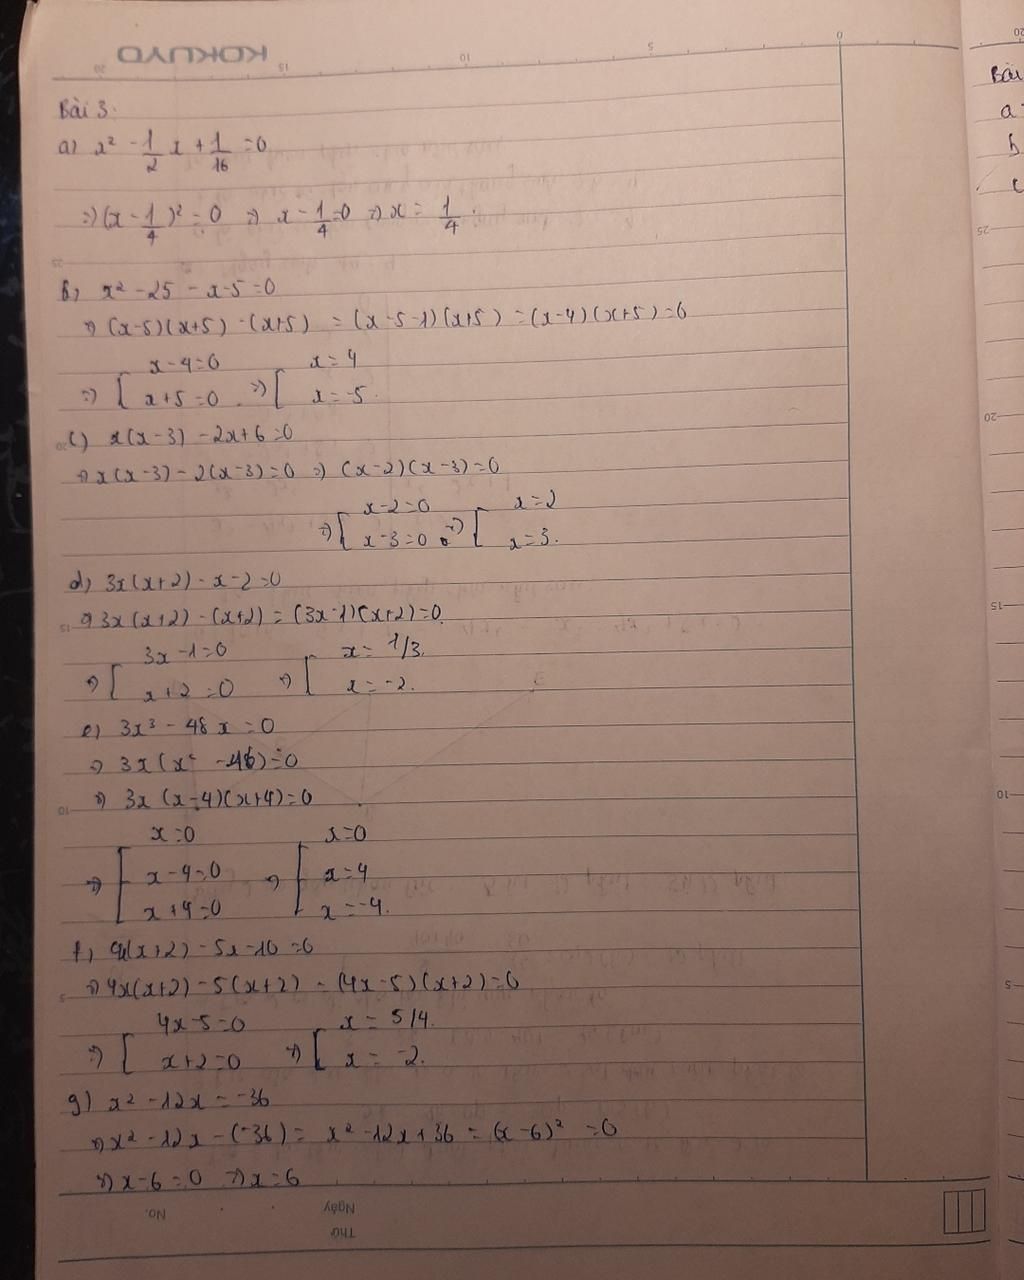 KOKUYO
Bài 3:
a) x² - 1/2 x + 1/16 = 0
=> (x - 1/4)² = 0 => x - 1/4 = 0 => x = 1/4.
b) x² - 25 - x - 5 = 0
=> (x-5)(x+5) - (x+5) = (x-5-1)(x+5) = (x-4)(x+5) = 0
=> [ x-4=0 => [ x=4
x+5=0 x=-5.
c) x(x-3) - 2x+6=0
=> x(x-3) - 2(x-3)=0 => (x-2)(x-3)=0
=> [ x-2=0 => [ x=2
x-3=0 x=3.
d) 3x(x+2) - x - 2=0
=> 3x(x+2) - (x+2) = (3x-1)(x+2)=0.
=> [ 3x-1=0 => [ x = 1/3.
x+2=0 x=-2.
e) 3x³ - 48x = 0
=> 3x(x² - 16)=0
=> 3x(x-4)(x+4)=0
=> [ x=0 => [ x=0
x-4=0 x=4
x+4=0 x=-4.
f) 4x(x+2) - 5x-10=0
=> 4x(x+2) - 5(x+2) = (4x-5)(x+2)=0
=> [ 4x-5=0 => [ x = 5/4.
x+2=0 x = -2.
g) x² - 12x = -36
=> x² - 12x - (-36) = x² - 12x + 36 = (x-6)² = 0
=> x-6=0 => x=6
No.
Ngày
Thứ
Bài
a
b
c